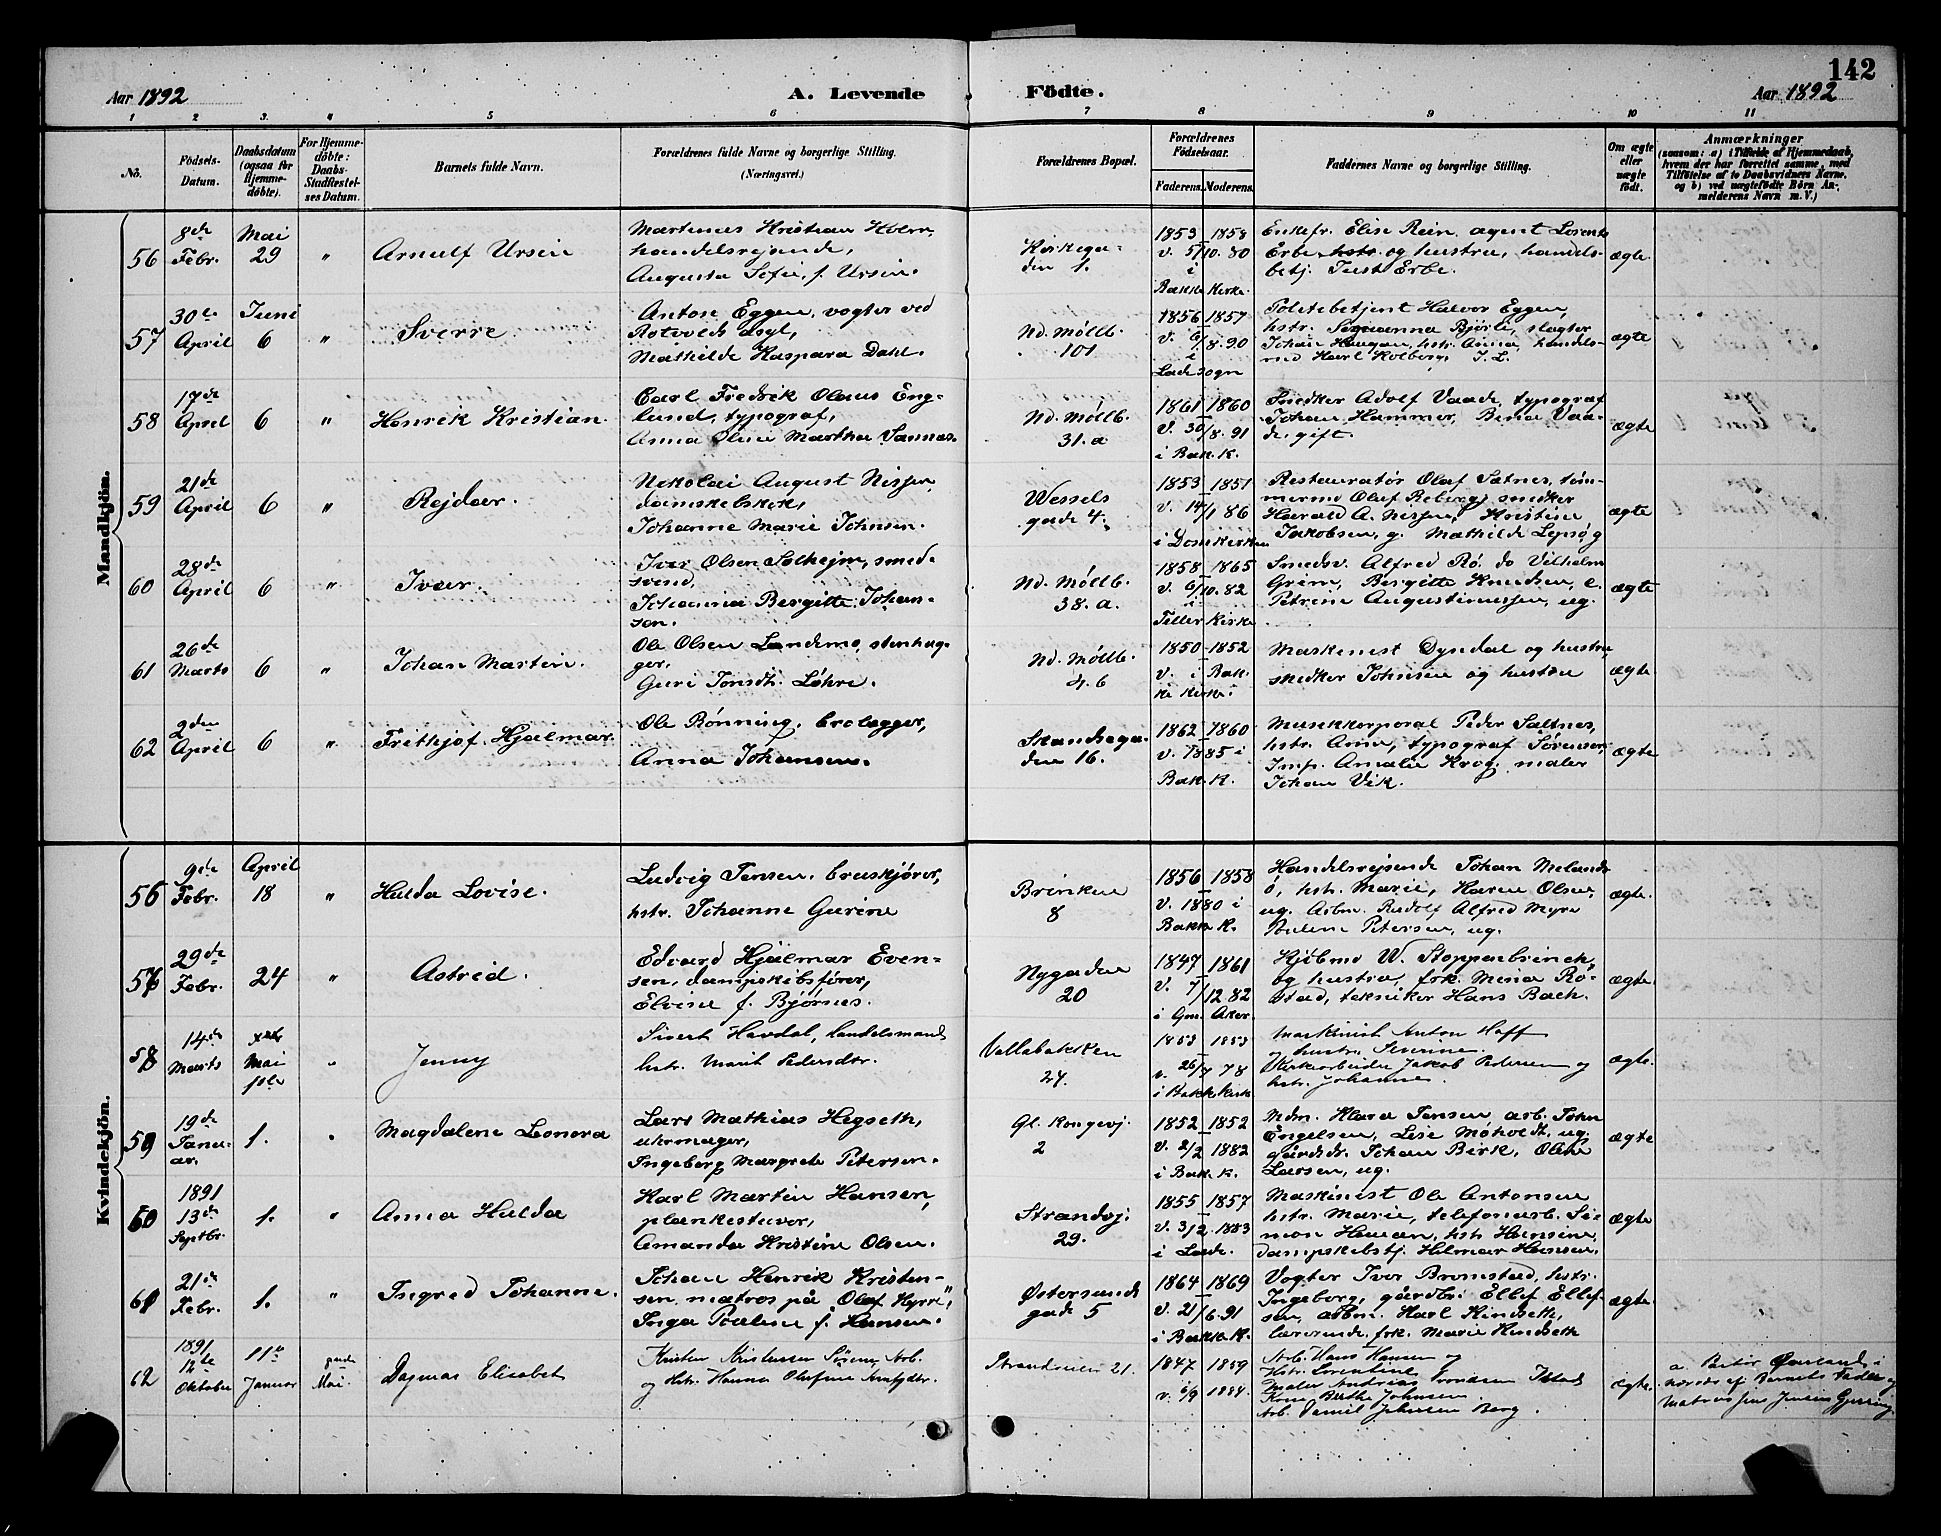 142
Aar 1892
A. Levende
Födte.
Aar 1892
1 2 3. 4 5 6 7 8 9 10 11
No.
Födsels-
Datum.
Daabsdatum
(ogsaa for
Hjemme-
döbte).
For Hjemme-
döbte:
Daabs-
Stadfæstel-
ses Datum.
Barnets fulde Navn.
Forældrenes fulde Navne og borgerlige Stilling.
(Næringsvei.)
Forældrenes Bopæl.
Forældrenes
Födselsaar.
Faderens. Moderens.
Faddernes Navne og borgerlige Stilling.
Om ægte
eller
uægte
födt.
Anmærkninger
(saasom: a) i Tilfælde af Hjemmedaab,
hvem der har forrettet samme, med
Tilföielse af to Daabsvidners Navne.
og b) ved uægtefödte Börn An-
melderens Navn m. V.)
Mandkjön.
56
8de
Febr.
Mai
29
"
Arnulf Ursin
Martinus Kristian Holm,
handelsrejsende,
Augusta Sofie, f. Ursin.
Kirkega-
den 1.
1853 1858
v. 5/10. 80
i
Bakke Kirke.
Enkefr. Elise Rein, agent Lorents
Erbe og hustru, handels-
betj. Just Erbe.
ægte
57
30te
April
Juni
6
"
Sverre
Anton Eggen, vogter ved
Rotvolds asyl,
Mathilde Kaspara Dahl.
Nd. Møllb.
101
1856 1857
v. 6/8. 90
i
Lade sogn
Politibetjent Halvor Eggen,
hstr. Bjørli, slagter
Johan Haugan, hstr. Anna, handels-
md Karl Kolberg,
ægte
58
17de
April
6
"
Henrik Kristian.
Carl Fredrik Olaus Eng-
lund, typograf,
Anna Oline Martha Sannæs.
Nd. Møllb.
31. a
1861 1860
v. 30/8. 91
i Bak. K.
Snedker Adolf Vaade, typograf
Johan Hammer, Berna Vaa-
de, gift.
ægte
59
21de
April
6
"
Rejdar.
Nikolai August Nissen,
Johanne Marie Johnsen.
Wessels
gade 4.
1853 1851
v. 14/1 86
i Domkirken
Restauratør Olaf Satnes, tøm-
mermd Oluf Reberg, snedker
Harald A. Nissen, Kristine
Jakobsen, g. Mathilde Lepsøg
ægte
60
28de
April
6
"
Ivar.
Iver Olsen Solhejm, smed-
svend,
Johanna Bergitte Johan-
sen.
Nd. Møllb.
38. a.
1858 1865
v. 6/10. 82
i
Tiller Kirke
Smedsv. Alfred Rø, do Vilhelm
Grim, Bergitte Knudsen, e.
Petrine Augustinussen, ug.
ægte
61
26de
Marts
6
"
Johan Martin.
Ole Olsen Landemo, stenhug-
ger,
Guri Jonsdt. Løhre.
Nd. Møllb.
4. b
1850 1852
v. i Bak-
ke Kirke.
Maskinist Dyndal og hustru,
snedker Johnsen og hustru
ægte
62
2den
April
6
"
Frithjof Hjalmar.
Ole Rønning, brolægger,
Anna Johansen.
Skandsega-
den 16.
1862 1860
v. 1885 i
Bak. K.
Musikkorporal Peder Saltnes,
hstr. Ane, typograf Sørensen,
Amalie Krog, maler
Johan Vik.
ægte
Kvindekjön.
56
9de
Febr.
April
18
"
Hulda Lovise.
Ludvig Jensen, bruskjører,
hstr. Johanne Gurine
Brinken
8
1856 1858
v. 1880 i
Bakk K.
Handelsrejsende Johan Meland-
ø, hstr. Marie, Karen Olsen,
ug. Arbm. Rudolf Alfred Myre
Pauline Petersen, ug.
ægte.
57
29de
Febr.
24
"
Astrid.
Edvard Hjalmar Even-
sen, dampskibsfører,
Elvine f. Bjørnes.
Nygaden
20
1847 1861
v. 7/12 82
i Gm. Aker.
Kjøbmd W. Stoppenbrinck
og hustru, frk. Mina Rø-
stad, tekniker Hans Bach.
ægte.
58
14de
Marts
Mai
1ste
"
Jenny
Sivert Havdal, handelsmand
hstr. Marit Pedersdtr.
Vollabakken
24.
1853 1853
v. 26/7 78
i Bakk Kirk
Maskinist Anton Hoff
og hustr. Severine.
Jakob Pedersen og
hstr. Johanne.
ægte.
59
19de
Janu-
ar.
1.
"
Magdalene Leonora
Lars Mathias Hegseth,
uhrmager,
Ingeborg Margrete Petersen.
Gl. Kongevj.
2
1852 1852
v. 2/2 1882
i Bak. K.
Mdm. Klara Jensen, arb. John
Engelsen, Lise Møholdt, ug,
gårdsdr. Johan Birk, Oline
Larsen, ug.
ægte
60
1891
13de
Septbr.
1.
"
Anna Hulda
Karl Martin Hansen,
plankestuver,
Amanda Kristine Olsen.
Strandvj.
29.
1855 1857
v. 3/2. 1883
i Lade.
Maskinist Ole Antonsen
hstr. Marie, telefonarb. Si-
mon Hansen, hstr. Hansine,
dampskibsbtj. Hilmar Hansen.
ægte
61
21de
Febr.
1.
"
Ingrid Johanne.
Johan Henrik Kristen-
sen, matros på "Olaf Kyrre",
Inga Pauline f. Hansen.
Østersunds
gade 5
1864 1869
v. 21/6. 91
i Bakk. K.
Vogter Iver Bromstad, hstr.
Ingeborg, gårdbr. Ellef Ellef-
sen, arbm. Karl Kindseth,
lærerinde frk. Marie Kindseth
ægte.
62
1891
12te
Oktober
11te
Januar
Mai.
Dagmar Elisabet
Kristen Kristensen Arb.
og Hstr. Hanna Olufine
Strandveien 21.
1847 1859
v. 6/9 1884
Arb. Hans Hansen og
Hstr. Lorentine
Maler Andreas
Kone Birthe Johnsen.
Arb. Daniel Johnsen Berg.
ægte.
a. Betør
nærvær af Barnets Fader og
Matros Jens Jensen